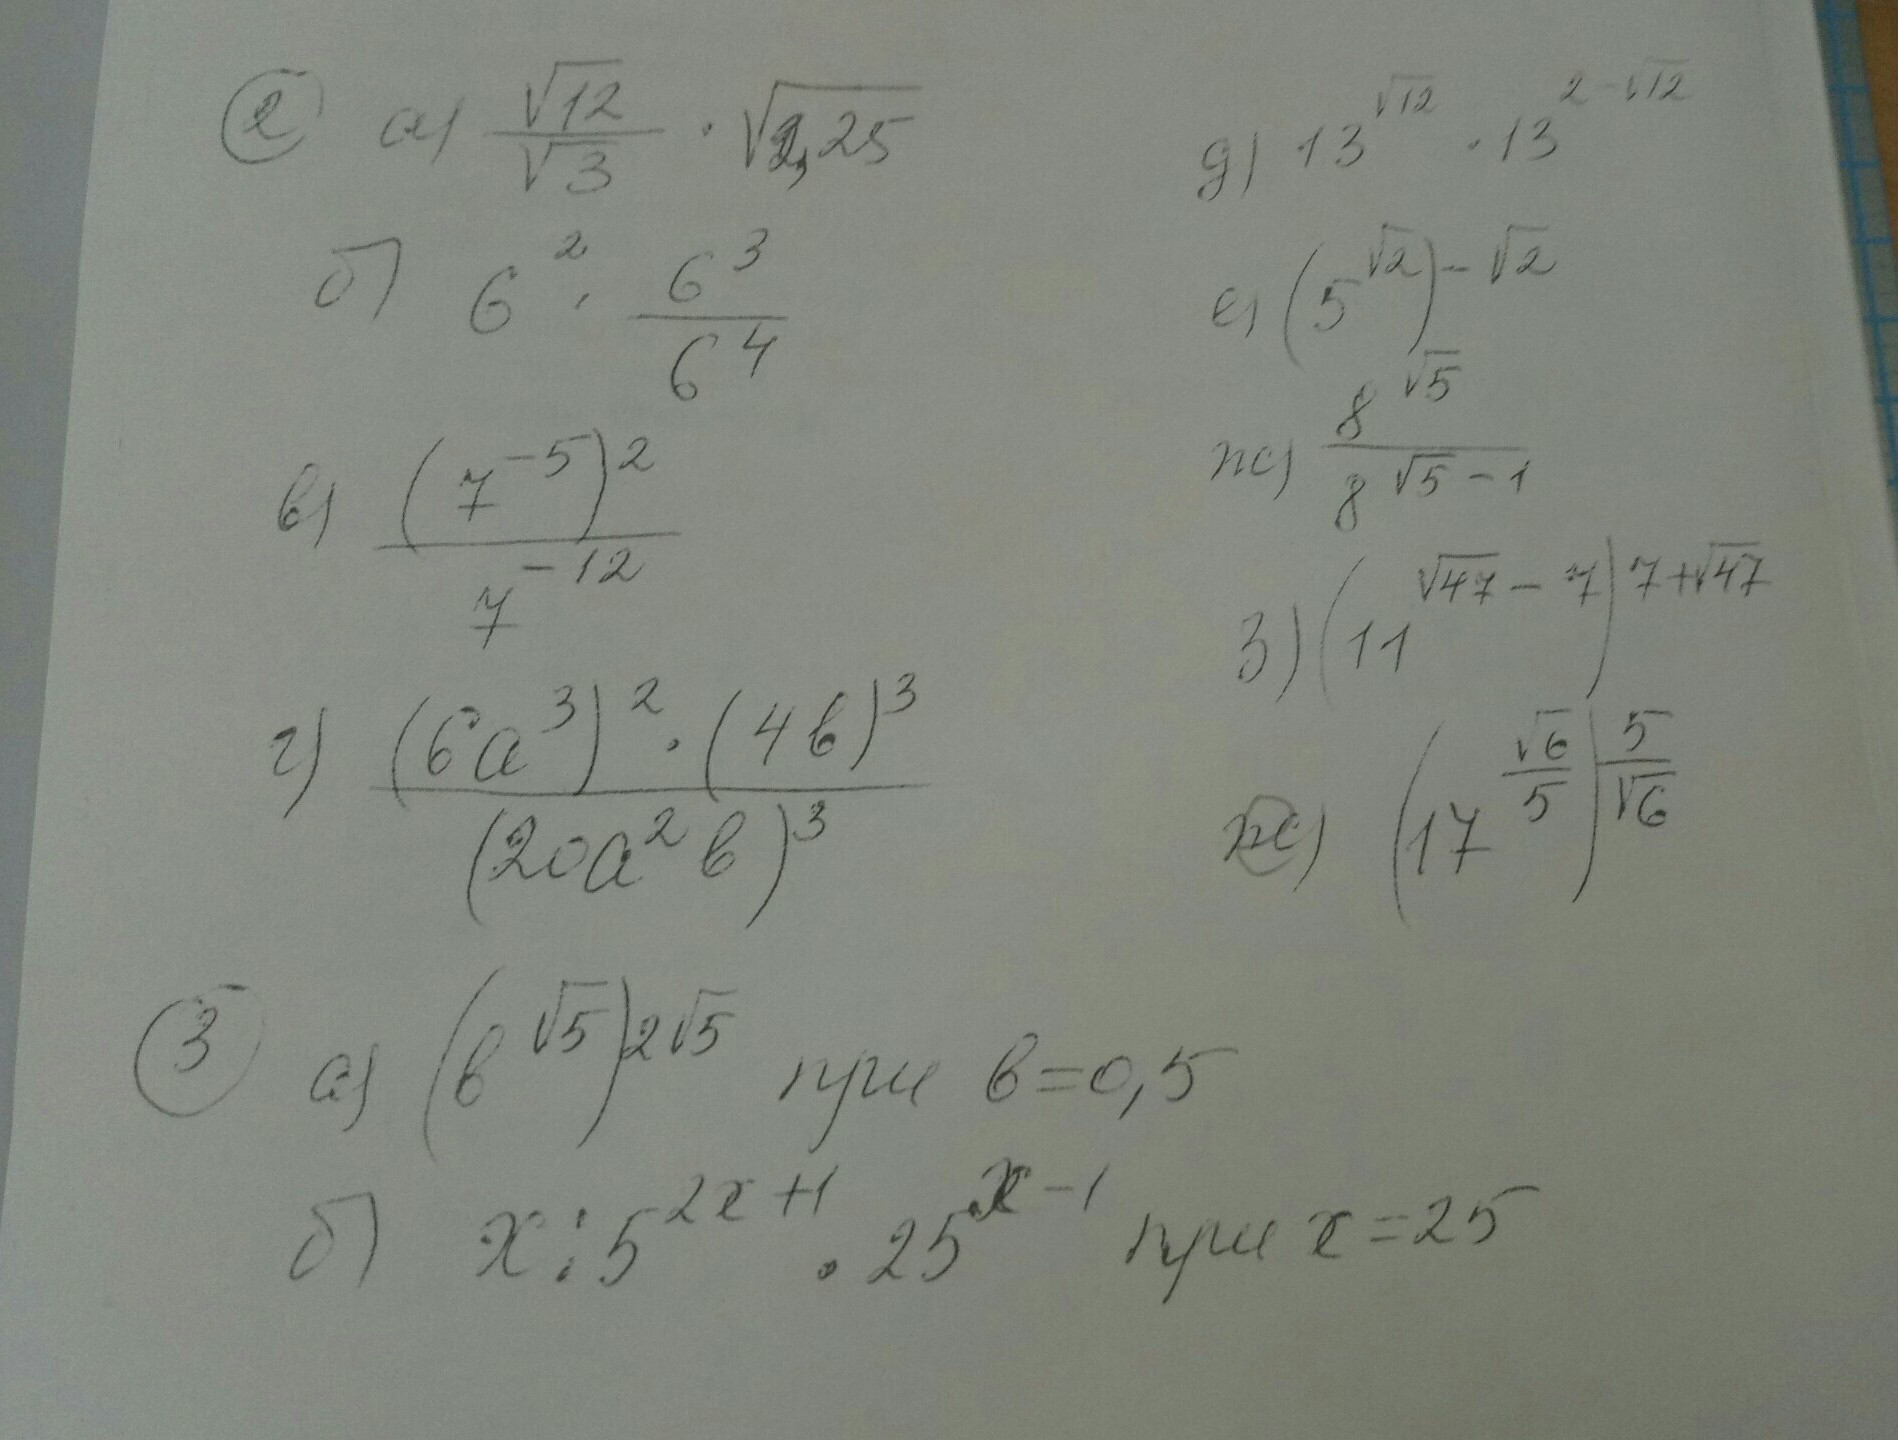 2 а) √12/√3 · √2,25
б) 6² · 6³/6⁴
в) (7⁻⁵)²/7⁻¹²
г) (6a³)² · (4b)³/(20a²b)³
д) 13^√12 · 13^(2-√12)
е) (5^√2)^-√2
ж) 8^√5/8^(√5-1)
з) (11^(√47-7))^(7+√47)
ж) (17^(√6/5))^(5/√6)
3 а) (b^√5)^(2√5) при b=0,5
б) x:5^(2x+1) · 25^(x-1) при x=25